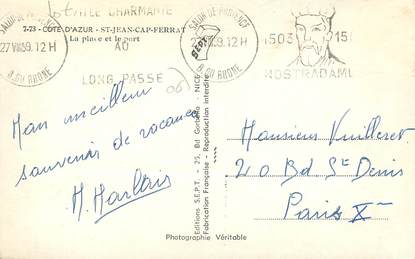 VILLE CHARMANTE
SALON DE PROVENCE
SALON DE PROVENCE
7-73 - CÔTE D'AZUR - ST-JEAN-CAP-FERRAT
La place et le port
27 VII 59. 12 H
AU
B. DU RHONE
LONG PASSE
B. DU RHONE
1503
NOSTRADAMU
Mon meilleur
souvenir de vacances
Editions S.E.P.T. - 25, Bd Gorbella NICE
Fabrication Française - Reproduction interdite
SEPT
Monsieur Vuilleret
20 Bd St Denis
Paris X
Photographie Véritable